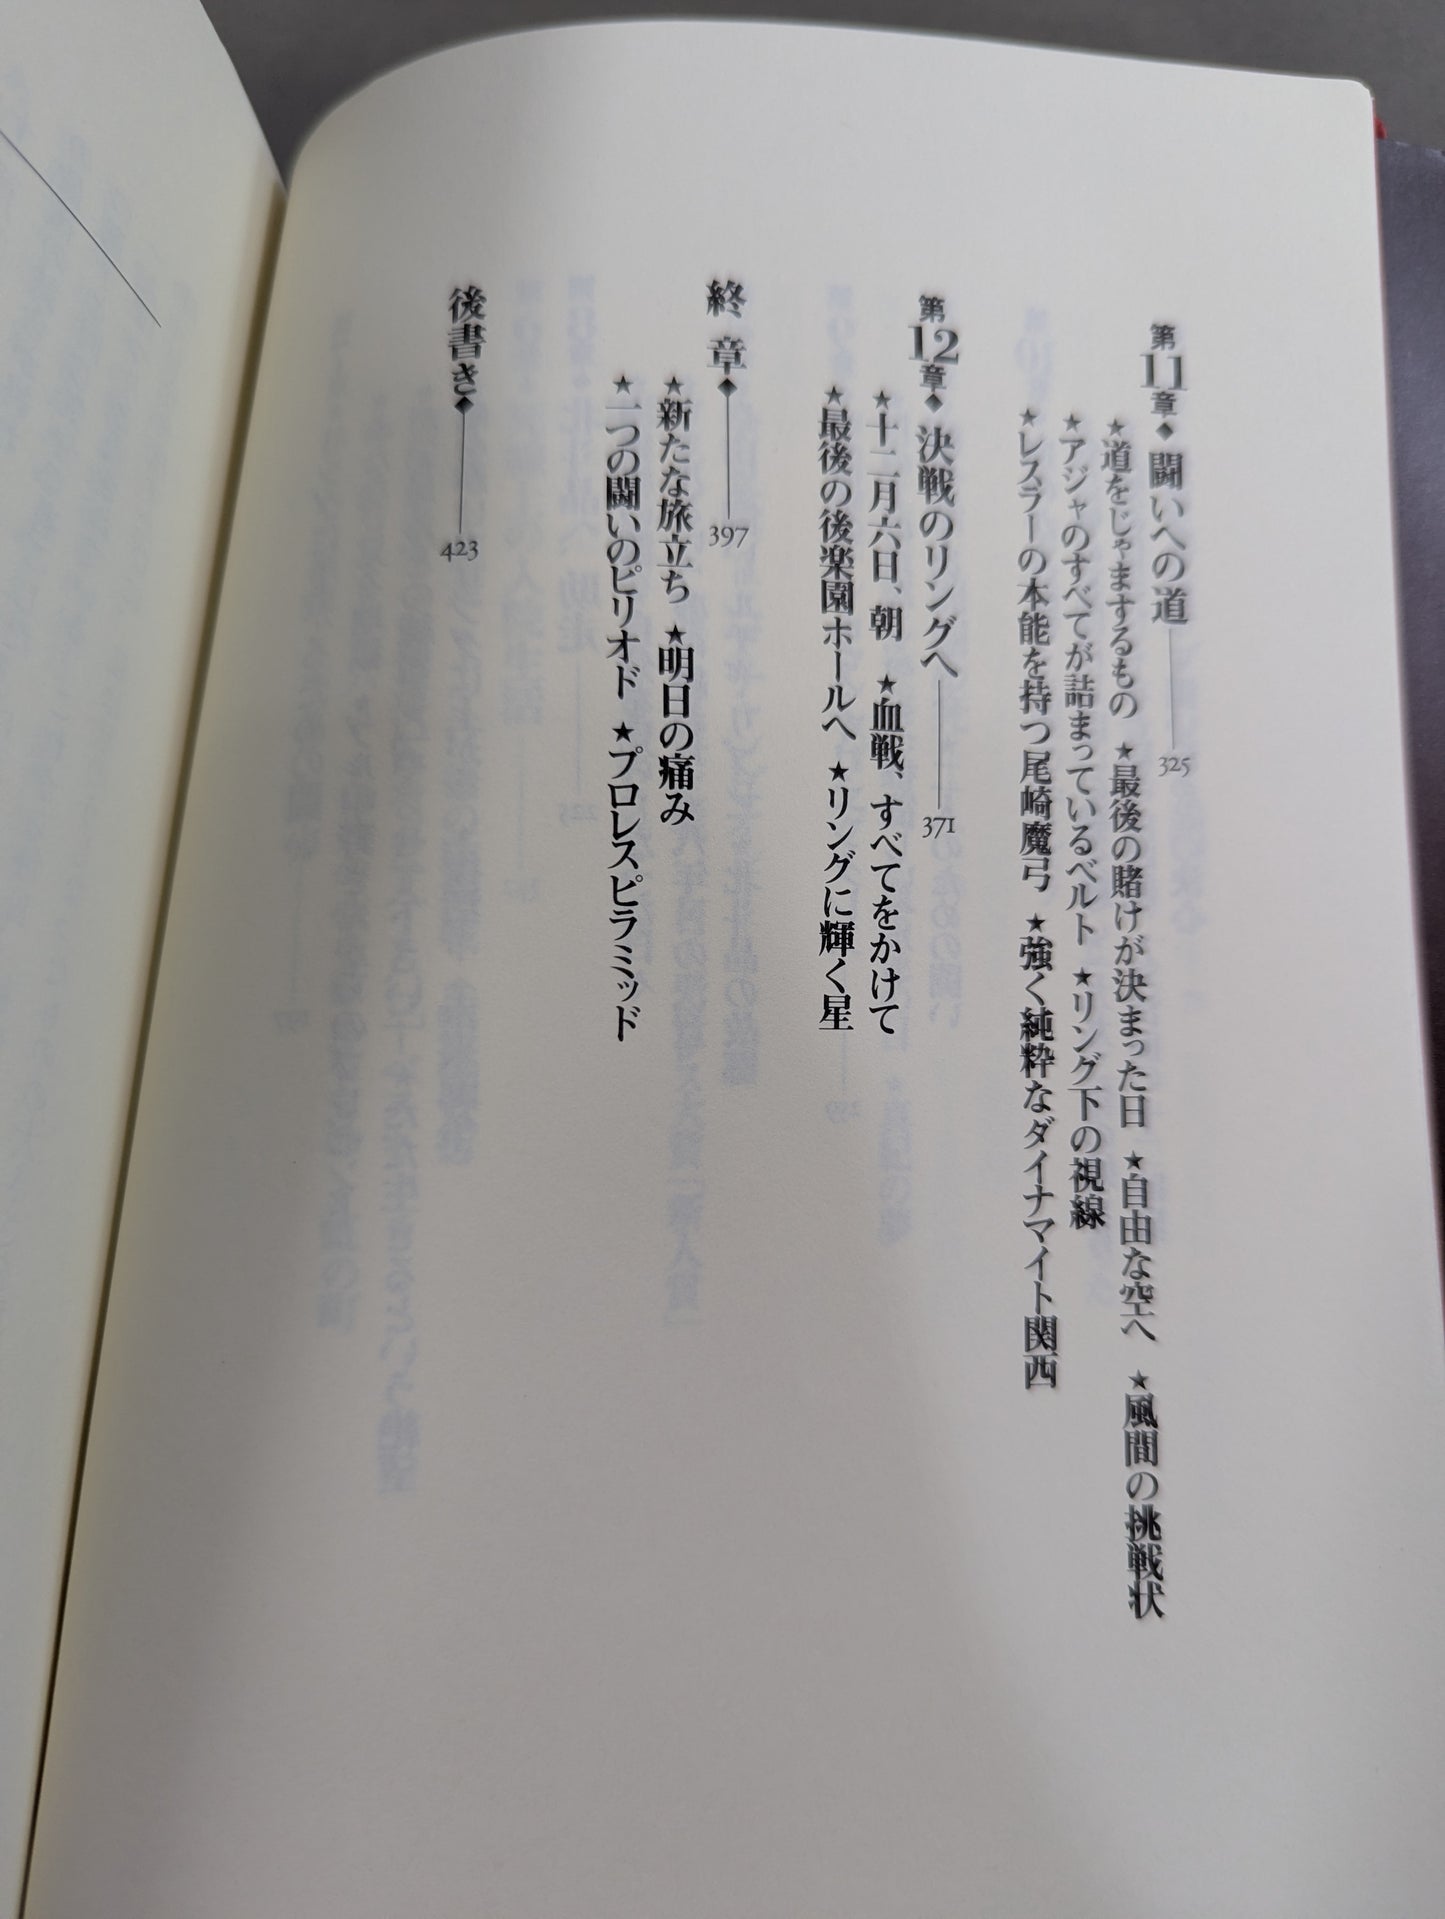 第11章◆闘いへの道――325
★道をじゃまするもの ★最後の賭けが決まった日 ★自由な空へ ★風間の挑戦状
★アジャのすべてが詰まっているベルト ★リング下の視線
★レスラーの本能を持つ尾崎魔弓 ★強く純粋なダイナマイト関西
第12章◆決戦のリングへ――371
★十二月六日、朝 ★血戦、すべてをかけて
★最後の後楽園ホールへ ★リングに輝く星
終章◆――397
★新たな旅立ち ★明日の痛み
★一つの闘いのピリオド ★プロレスピラミッド
後書き◆――423